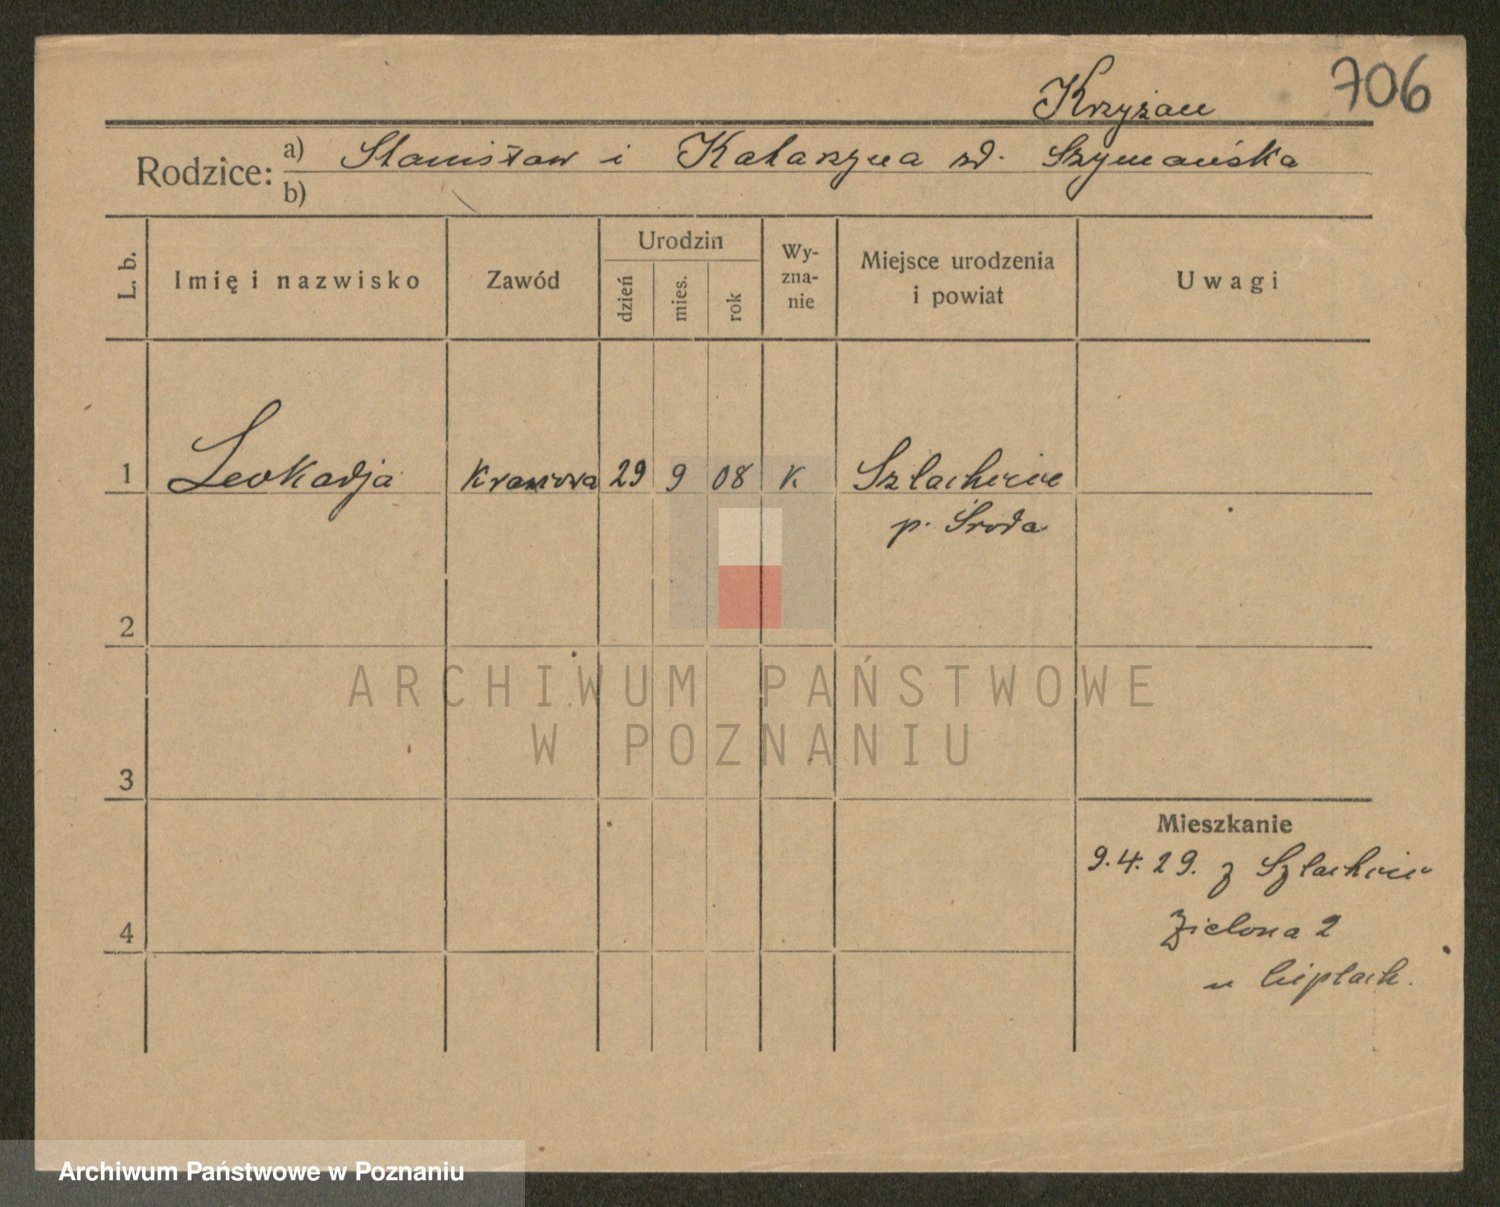 706
Krzyżan
Rodzice: a) Stanisław i Katarzyna zd. Szymańska
b)
L. b.
Imię i nazwisko
Zawód
Urodzin
dzień
mies.
rok
Wy-
zna-
nie
Miejsce urodzenia
i powiat
Uwagi
1 Leokadja Krawcowa 29 9 08 K Szlachcin
p. Środa
2
3
4
Mieszkanie
9.4.29. z Szlachcin
Zielona 2
u
ARCHIWUM PAŃSTWOWE
W POZNANIU
Archiwum Państwowe w Poznaniu